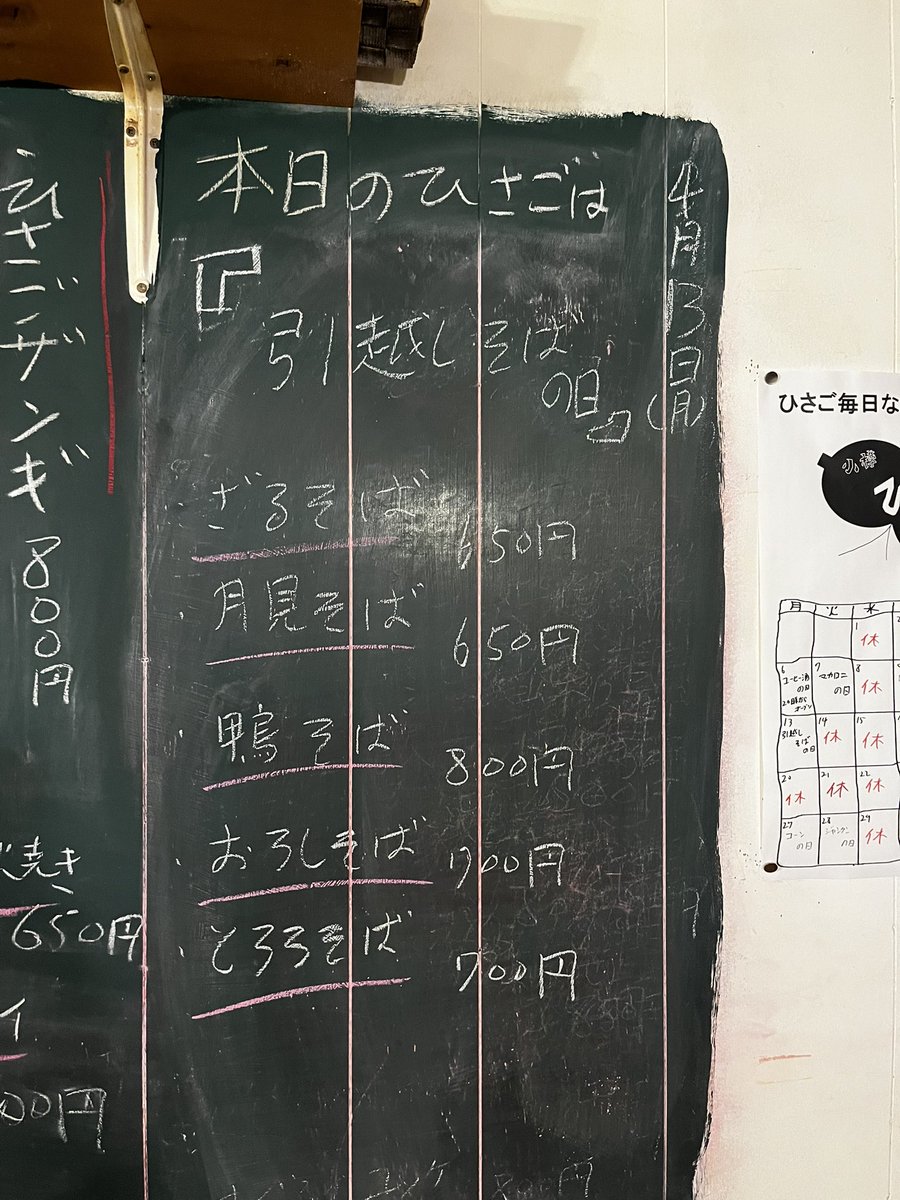 本日のひさごは
4月13日(月)
『引越しそば
の日』
・ざるそば 650円
・月見そば 650円
・鴨そば 800円
・おろしそば 700円
・とろろそば 700円
ひさごザンギ 800円
焼き
650円
イ
00円
00円
ひさご毎日な
小樽
ひ
月 火 水
1 休
6 コーヒー酒の日 20時からオープン
7 マカロニの日
8 休
13 引越しそばの日
14 休
15 休
20 休
21 休
22 休
27 コーンの日
28 の日
29 休